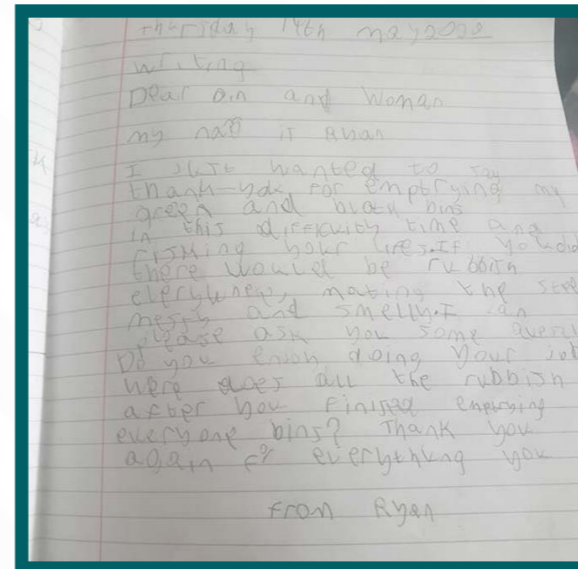 Thursday 14th may 2020
writing
Dear Bin and Woman
my naÐ is Ryan
I just wanted to say
thank-you for emptrying my
green and black bins
in this difficulty time and
risking your lifes. If you did
there would be rubbish
everywhere, making the stre
messy and smelly. I can
please ask you some questi
Do you enjoy doing your job
Were does all the rubbish
after you finised emptying
everyone bins? Thank you
again for everything you
From Ryan